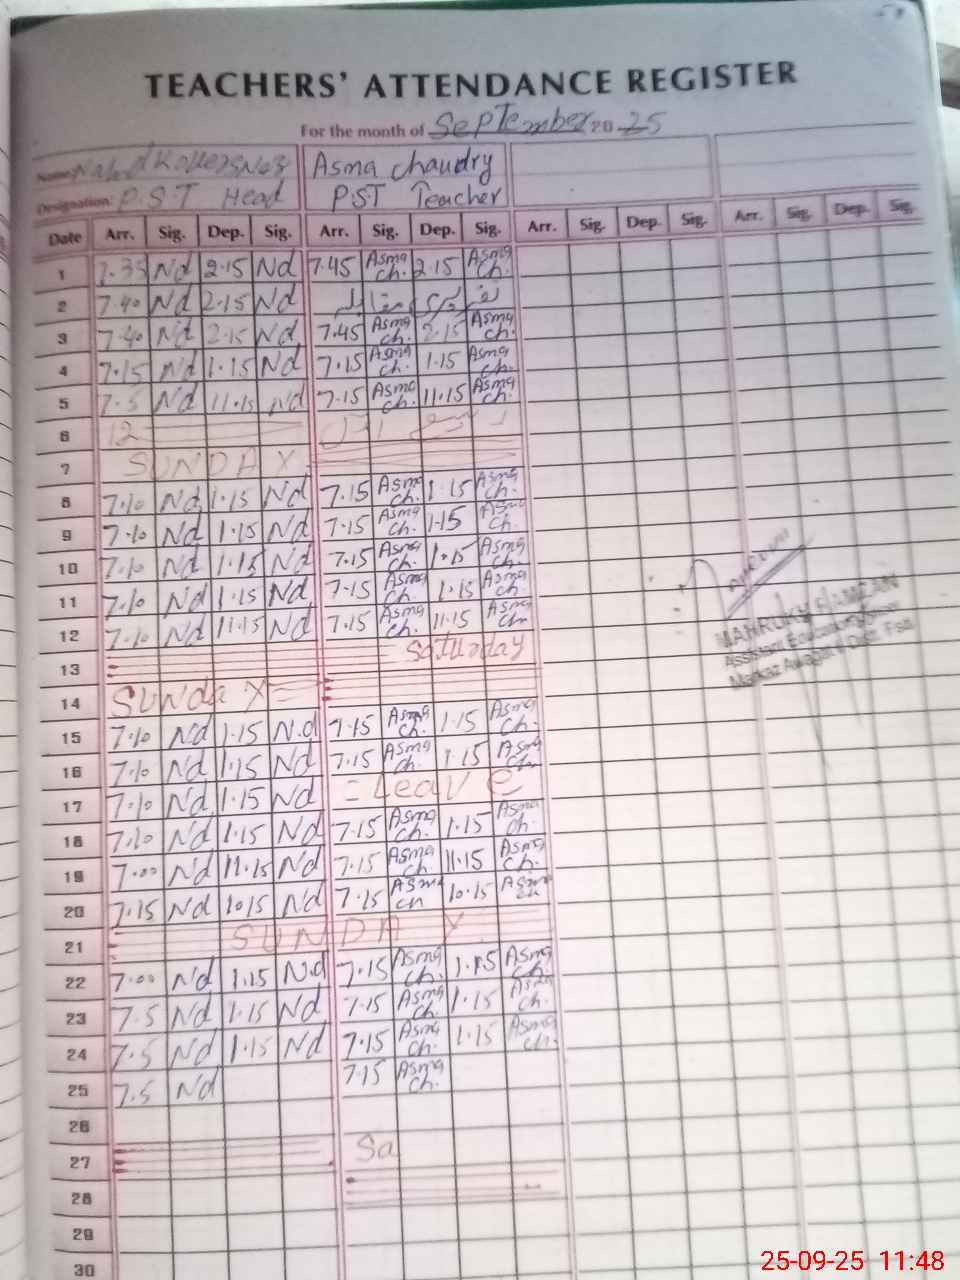 TEACHERS' ATTENDANCE REGISTER
For the month of September 2025
Name: Asma Chaudry
Designation: P.S.T Head P.S.T Teacher
Date Arr. Sig. Dep. Sig. Arr. Sig. Dep. Sig. Arr. Sig. Dep. Sig. Arr. Sig. Dep. Sig.
1 7.35 Nd 2.15 Nd 7.45 Asma Ch. 2.15 Asma Ch.
2 7.40 Nd 2.15 Nd
3 7.40 Nd 2.15 Nd 7.45 Asma Ch. 2.15 Asma Ch.
4 7.15 Nd 1.15 Nd 7.15 Asma Ch. 1.15 Asma Ch.
5 7.5 Nd 11.15 Nd 7.15 Asma Ch. 11.15 Asma Ch.
6 12
7 SUNDAY
8 7.10 Nd 1.15 Nd 7.15 Asma Ch. 1.15 Asma Ch.
9 7.10 Nd 1.15 Nd 7.15 Asma Ch. 1.15 Asma Ch.
10 7.10 Nd 1.15 Nd 7.15 Asma Ch. 1.15 Asma Ch.
11 7.10 Nd 1.15 Nd 7.15 Asma Ch. 1.15 Asma Ch.
12 7.10 Nd 11.15 Nd 7.15 Asma Ch. 11.15 Asma Ch
13 Saturday
14 SUNdaY
15 7.10 Nd 1.15 N.d 7.15 Asma Ch. 1.15 Asma Ch.
16 7.10 Nd 1.15 Nd 7.15 Asma Ch. 1.15 Asma Ch
17 7.10 Nd 1.15 Nd = Leave
18 7.10 Nd 1.15 Nd 7.15 Asma Ch. 1.15 Asma Ch.
19 7.00 Nd 11.15 Nd 7.15 Asma Ch 11.15 Asma Ch.
20 7.15 Nd 10.15 Nd 7.15 Asma Ch 10.15 Asma Ch
21 SUNDAY
22 7.00 Nd 1.15 N.d 7.15 Asma Ch. 1.15 Asma Ch.
23 7.5 Nd 1.15 Nd 7.15 Asma Ch. 1.15 Asma Ch.
24 7.5 Nd 1.15 Nd 7.15 Asma Ch. 1.15 Asma Ch.
25 7.5 Nd 7.15 Asma Ch.
26
27 Sa
28
29
30
MAHRUKH RAMZAN
Assistant Education Officer
Markaz
25-09-25 11:48